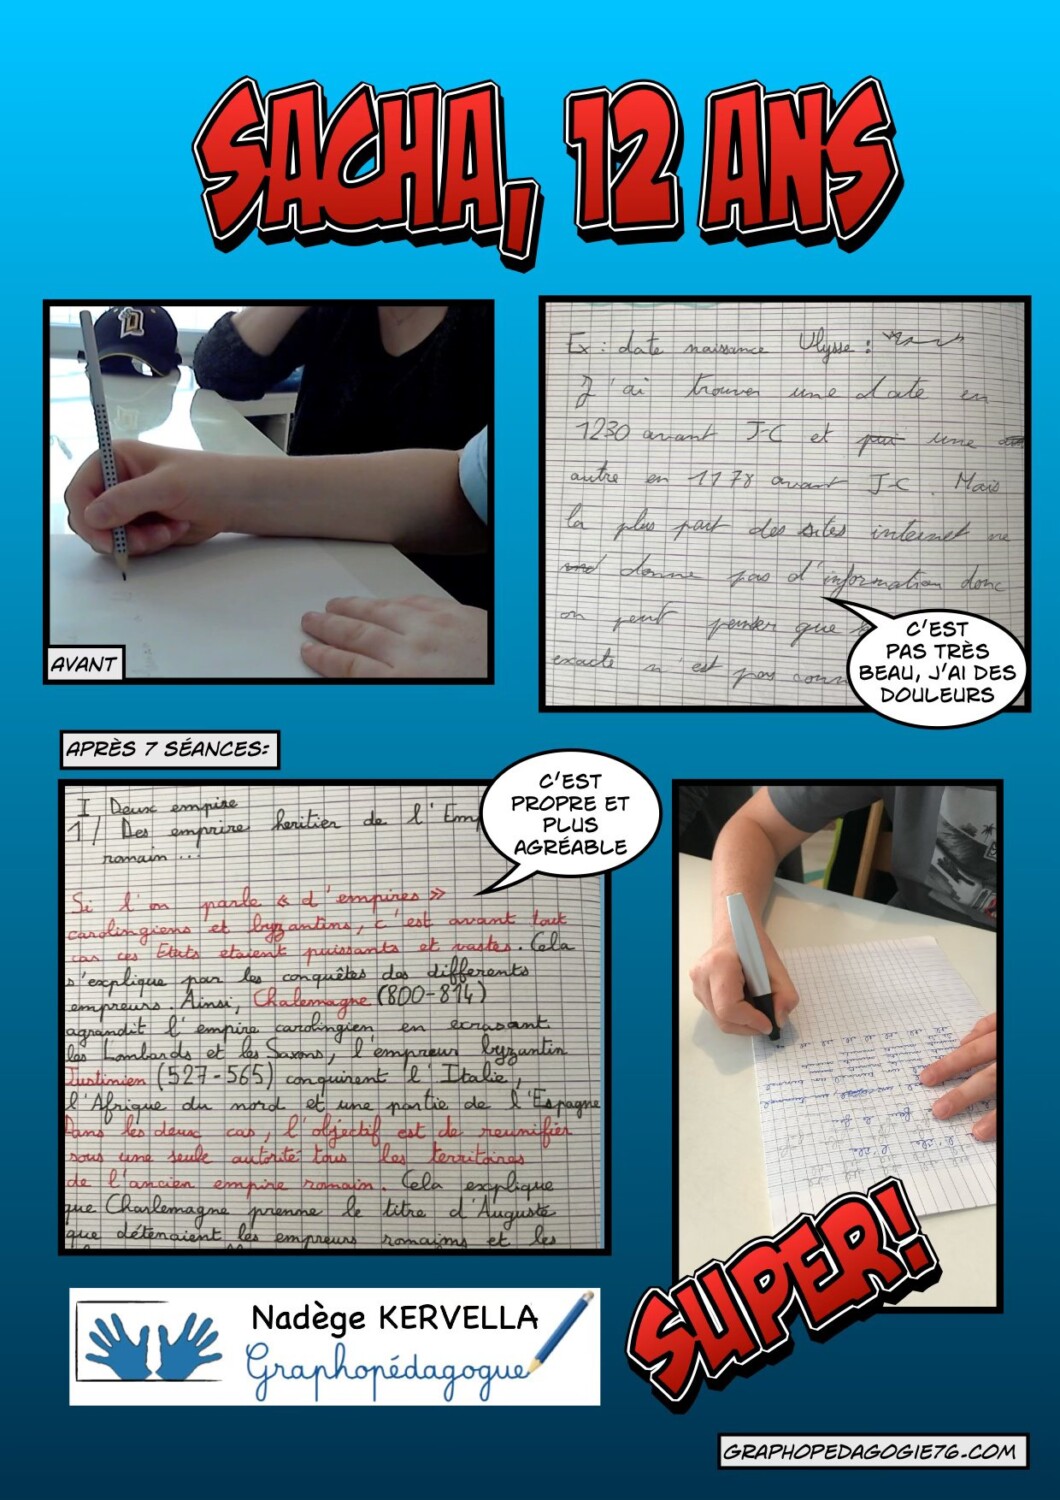 SACHA, 12 ANS
D
AVANT
Ex : date naissance Ulysse :
J'ai trouver une date en
1230 avant J-C et pui une
autre en 1178 avant J-C. Mais
la plus part des sites internet ne
donne pas d'information donc
on peut penser que
exacte n'est pas
C'EST
PAS TRÈS
BEAU, J'AI DES
DOULEURS
APRÈS 7 SÉANCES:
I Deux empire
1/ Des emprire heritier de l'Emp
romain ...
Si l'on parle « d'empires »
carolingiens et byzantins, c'est avant tout
car ces Etats etaient puissants et vastes. Cela
s'explique par les conquêtes des differents
empreurs. Ainsi, Chalemagne (800-814)
agrandit l'empire carolingien en ecrasant
les Lombards et les Saxons, l'empreur byzantin
Justinien (527-565) conquirent l'Italie,
l'Afrique du nord et une partie de l'Espagne
Dans les deux cas, l'objectif est de reunifier
sous une seule autorité tous les territoires
de l'ancien empire romain. Cela explique
que Charlemagne prenne le titre d'Auguste
que détenaient les empreurs romains et les
C'EST
PROPRE ET
PLUS
AGRÉABLE
SUPER!
Nadège KERVELLA
Graphopédagogue
GRAPHOPEDAGOGIE76.COM